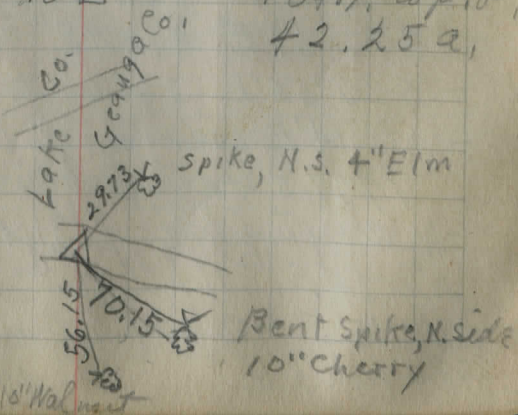 42.25 a.
Lake Co.
Geauga Co.
29.73
Spike, N.S. 4" Elm
70.15
56.15
Bent Spike, N. Side
10" Cherry
10" Walnut